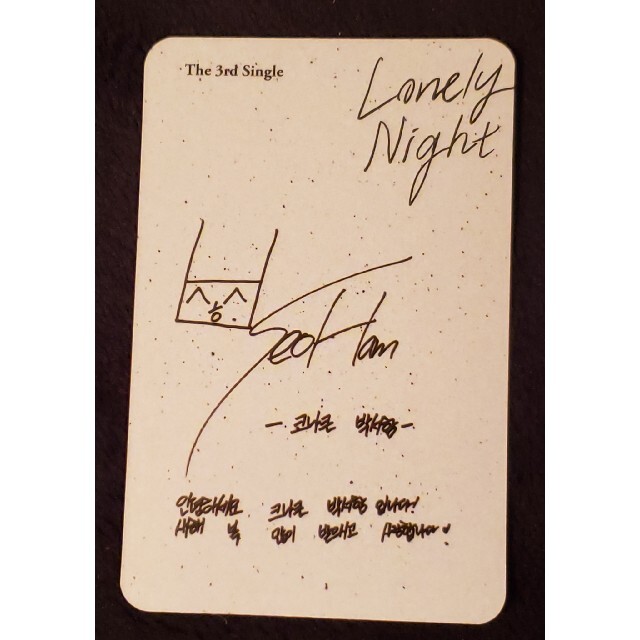 The 3rd Single
Lonely
Night
SeoHam
- 크나큰 박서함 -
안녕하세요 크나큰 박서함 입니다!
새해 복 많이 받으시고 사랑합니다♥